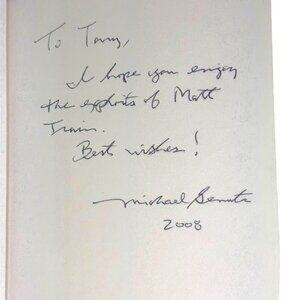 To Tony,
I hope you enjoy
the exploits of Matt
Best wishes!
Michael
2008